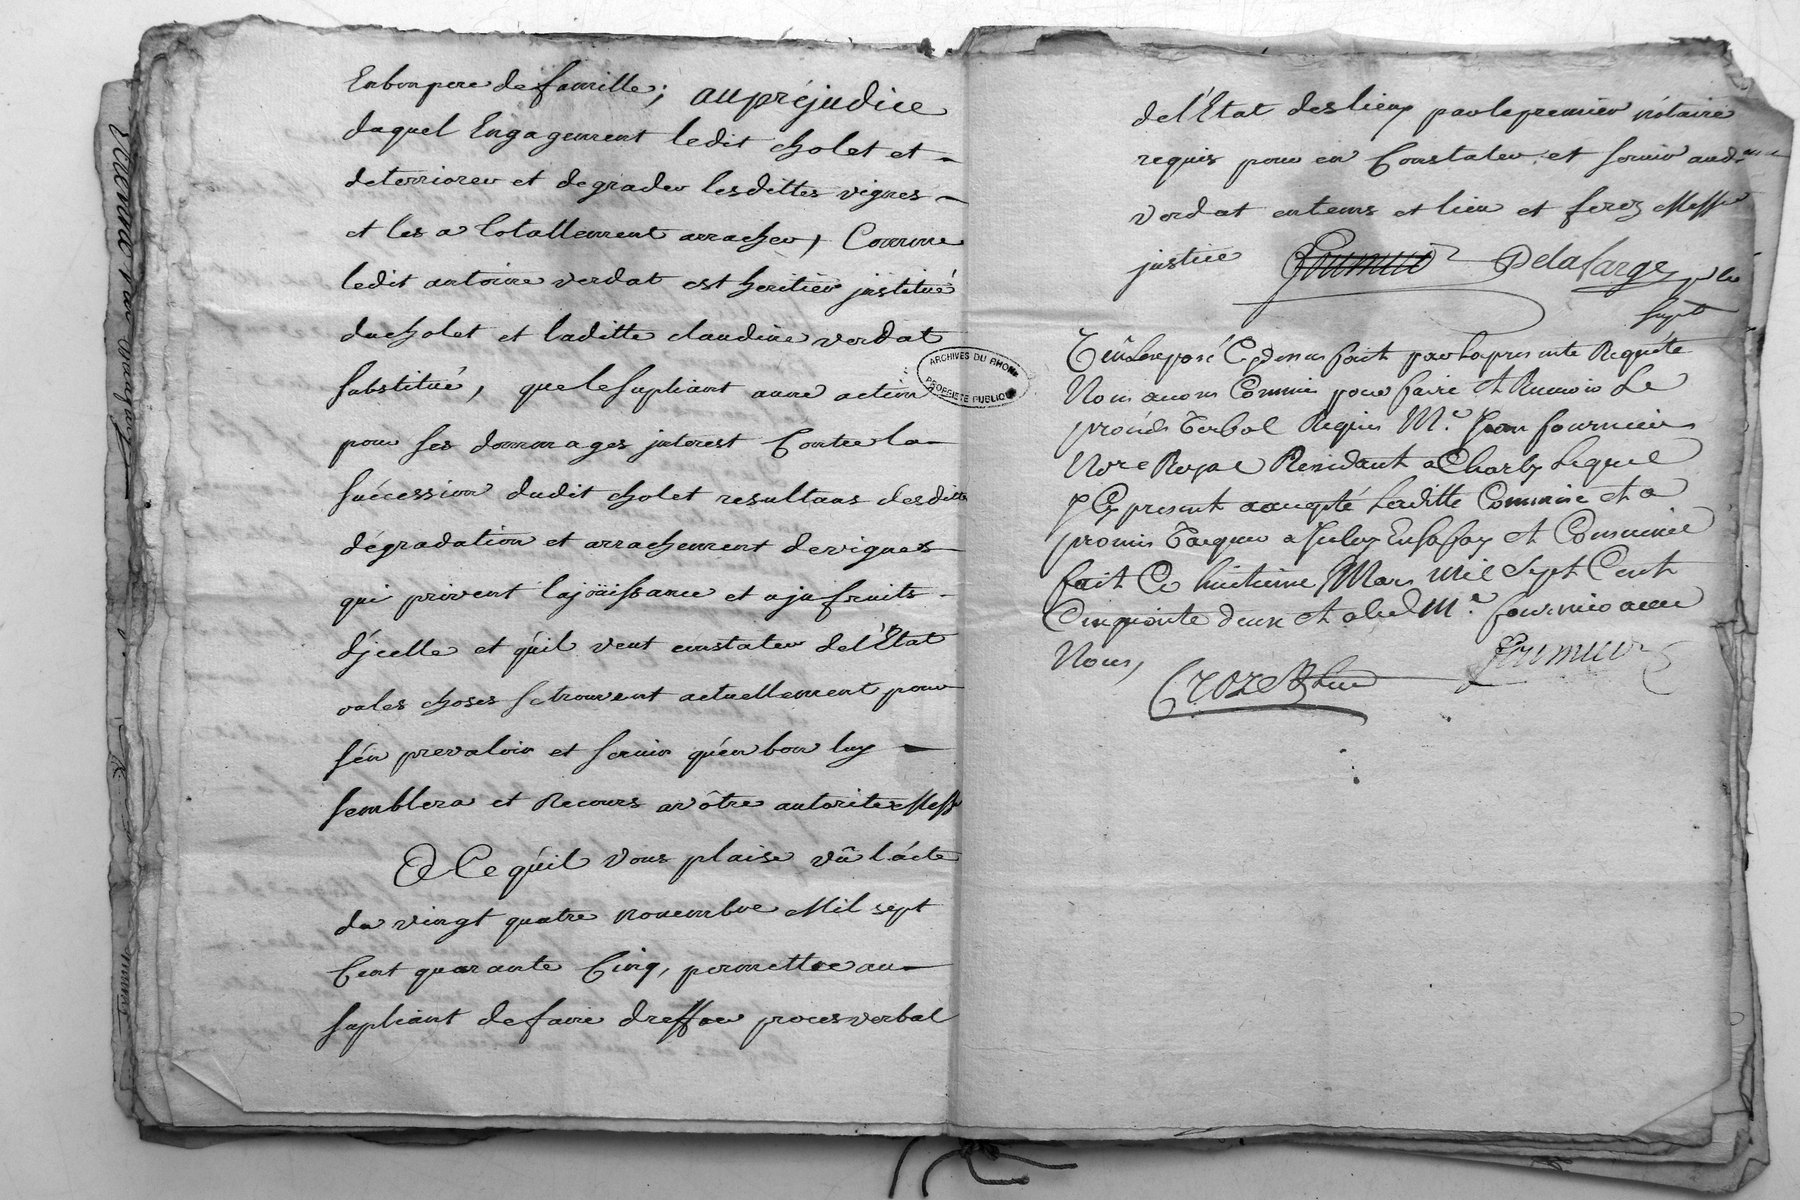 En bon pere de famille; au préjudice
duquel Engagement ledit cholet et
deterriorer et degrader lesdittes vignes
et les a totallement arracher, Comme
ledit antoine verdat est heritier jnstitué
du cholet et laditte claudine verdat
substitué, que le supliant a une action
pour ses dommages jnterest Contre la
succession dudit cholet resultans desdittes
dégradation et arrachement de vignes
qui privent la joüissance et usufruits
d'jcelle et qu'il veut constater de l'Etat
où les choses se trouvent actuellement pour
s'en prevaloir et servir qu'en bon luy
semblera et Recours a vôtre autorite Mess
A Ce qu'il Vous plaise vû l'acte
du vingt quatre novembre Mil sept
Cent quarante Cinq, permettre au
supliant de faire dresser proces verbal
de l'Etat des lieux par le premier nótaire
requis pour en Constater et servir aud.
Verdat en tems et lieu et ferez Messrs
justice Fournier Delafarge
supt
Vû L'exposé Cy dessus fait par La presente Requéte
Nous avons Commis pour faire et Recevoir Le
procés Verbal Requis Me. Jean fournier
Nore Royal Residant a Charly Lequel
Jcy present a accepté Laditte Commise et a
promis Vacquer a Jceluy En Sa foy et Commise
fait Ce huitieme Mars Mil Sept Cent
Cinquante deux et a led Me. fournier avec
Nous,
Crozet Fournier
ARCHIVES DU RHONE
PROPRIETE PUBLIQUE